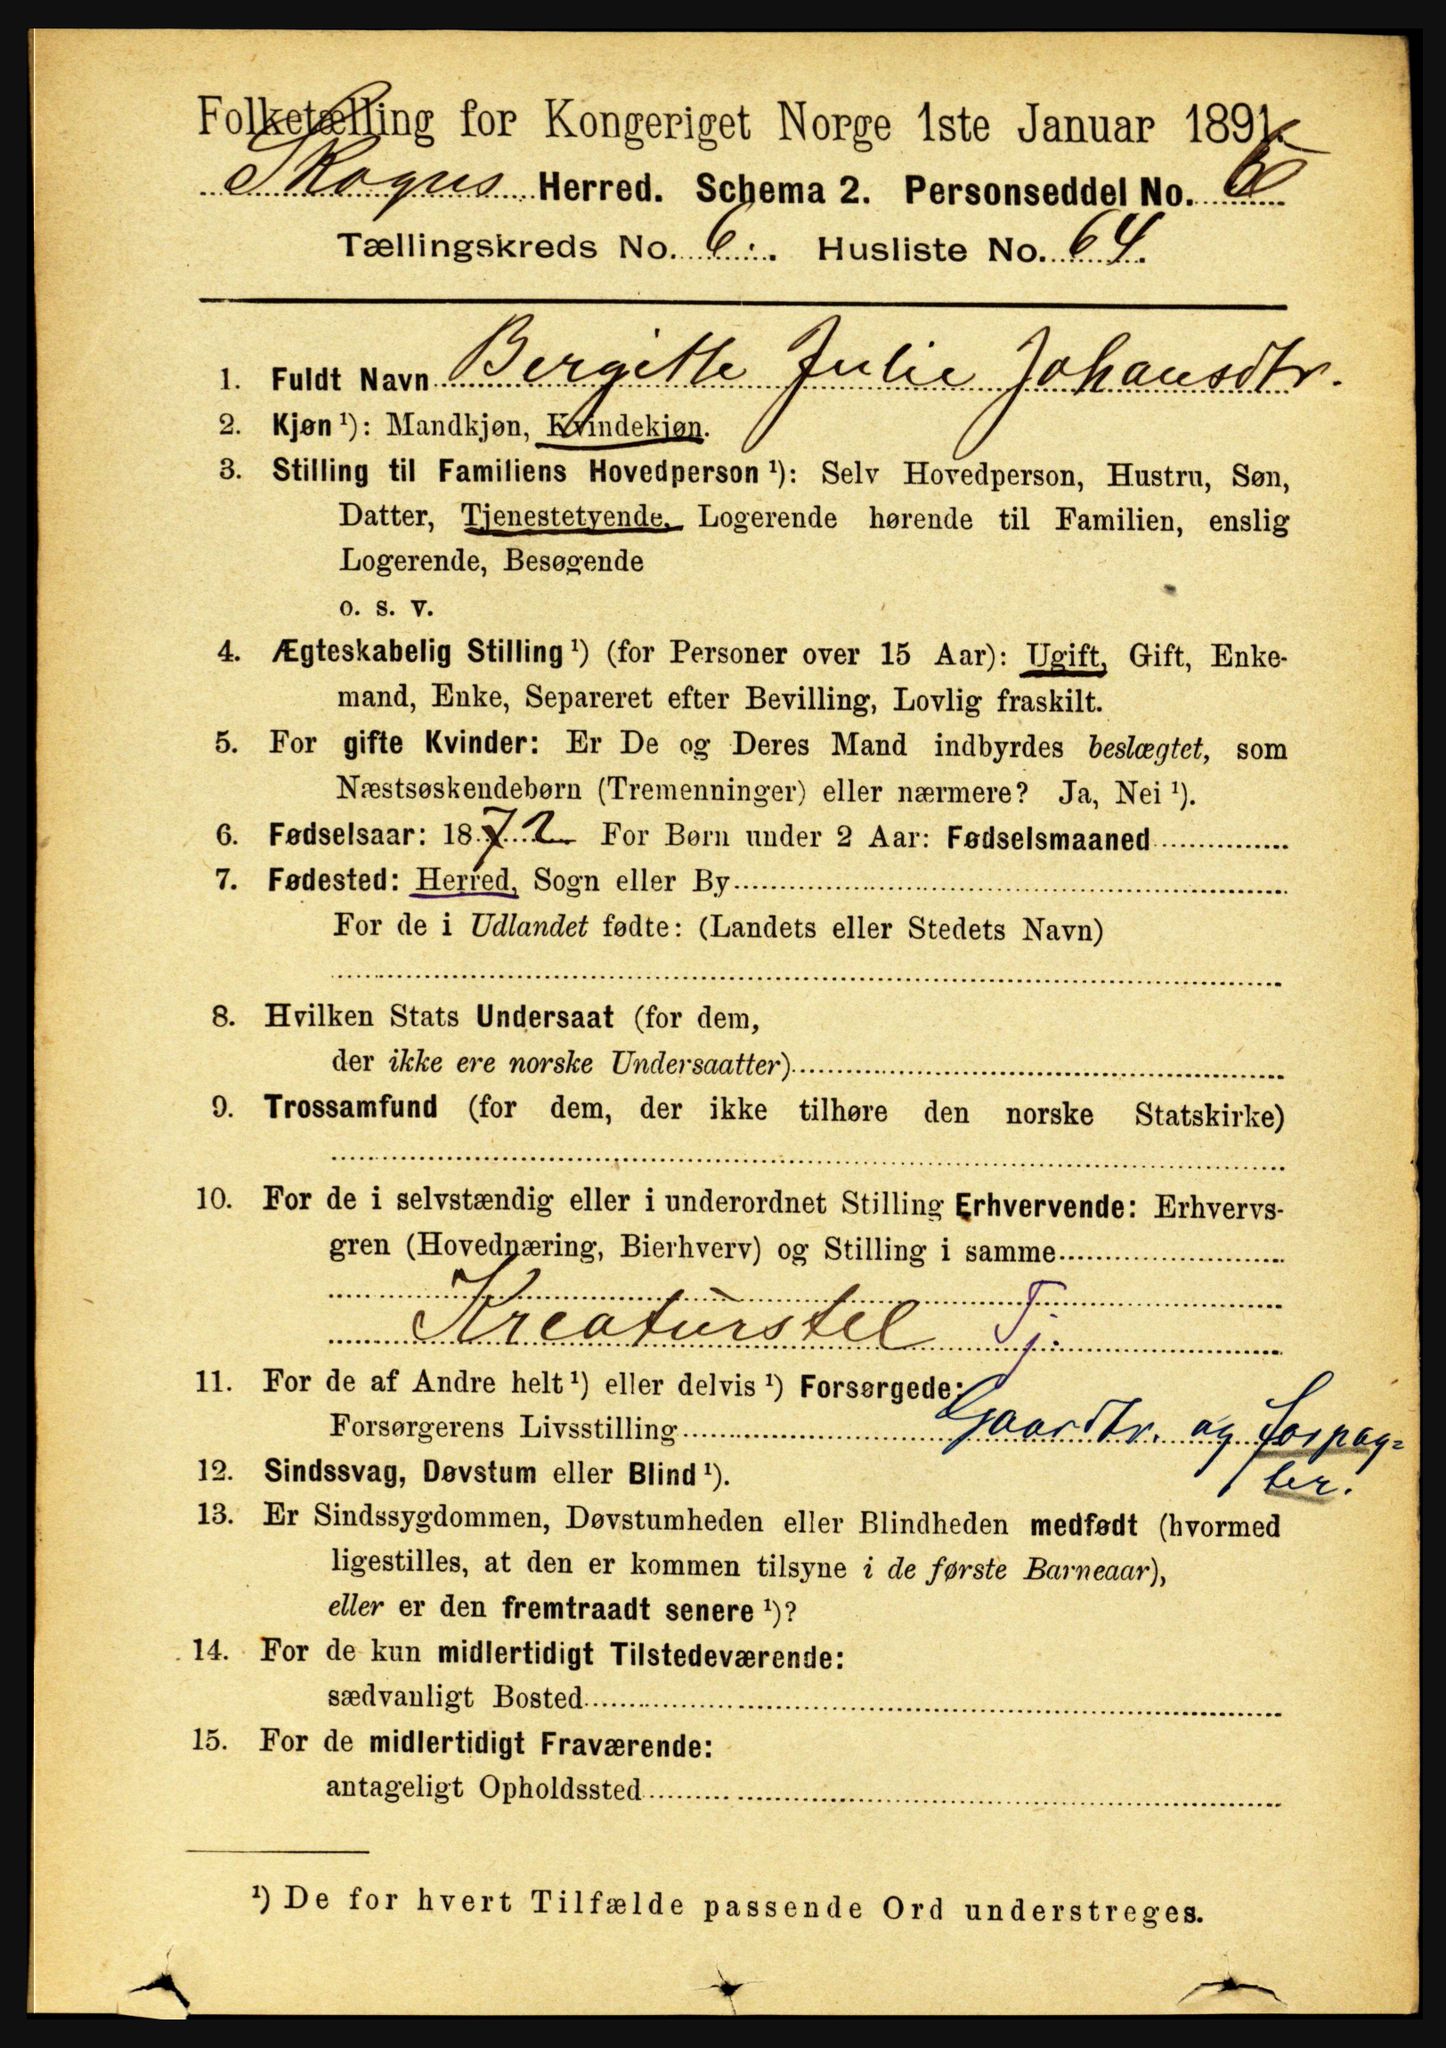 Folketælling for Kongeriget Norge 1ste Januar 1891.
Skogns Herred. Schema 2. Personseddel No. 6
Tællingskreds No. 6. Husliste No. 64.
1. Fuldt Navn Bergitte Julie Johansdtr.
2. Kjøn ¹): Mandkjøn, Kvindekjøn.
3. Stilling til Familiens Hovedperson ¹): Selv Hovedperson, Hustru, Søn,
Datter, Tjenestetyende, Logerende hørende til Familien, enslig
Logerende, Besøgende
o. s. v.
4. Ægteskabelig Stilling ¹) (for Personer over 15 Aar): Ugift, Gift, Enke-
mand, Enke, Separeret efter Bevilling, Lovlig fraskilt.
5. For gifte Kvinder: Er De og Deres Mand indbyrdes beslægtet, som
Næstsøskendebørn (Tremenninger) eller nærmere? Ja, Nei ¹).
6. Fødselsaar: 1872 For Børn under 2 Aar: Fødselsmaaned
7. Fødested: Herred, Sogn eller By
For de i Udlandet fødte: (Landets eller Stedets Navn)
8. Hvilken Stats Undersaat (for dem,
der ikke ere norske Undersaatter)
9. Trossamfund (for dem, der ikke tilhøre den norske Statskirke)
10. For de i selvstændig eller i underordnet Stilling Erhvervende: Erhvervs-
gren (Hovednæring, Bierhverv) og Stilling i samme
Kreaturstel Tj.
11. For de af Andre helt ¹) eller delvis ¹) Forsørgede:
Forsørgerens Livsstilling Gaardbr. og Forpag=
ter.
12. Sindssvag, Døvstum eller Blind ¹).
13. Er Sindssygdommen, Døvstumheden eller Blindheden medfødt (hvormed
ligestilles, at den er kommen tilsyne i de første Barneaar),
eller er den fremtraadt senere ¹)?
14. For de kun midlertidigt Tilstedeværende:
sædvanligt Bosted
15. For de midlertidigt Fraværende:
antageligt Opholdssted
¹) De for hvert Tilfælde passende Ord understreges.